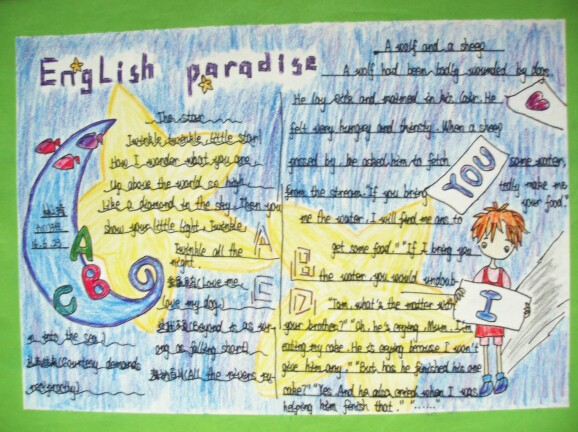 English paradise
The star
Twinkle, twinkle, little star!
How I wonder what you are
Up above the world so high
Like a diamond in the sky. Then you
show your little light, Twinkle
Twinkle all the
night.
(Love me,
love my dog.)
(Beyond is as wr-
ong as falling short)
(All the rivers ru-
n into the sea.)
(Courtesy demands
reciprocity)
A
B
C
A
B
C
D
A wolf and a sheep
A wolf had been badly wounded by dogs.
He lay sick and maimed in his lair. He
felt very hungry and thirsty. When a sheep
passed by, he asked him to fetch some water
from the stream. "If you bring
me the water, I will find me ans to
get some food." "If I bring you
the water, you would undoub-
tedly make me
your food."
YOU
I
"Tom, what's the matter with
your brother?" "Oh, he's crying, Mum. I'm
eating my cake. He is crying because I won't
give him any." "But has he finished his own
cake?" "Yes. And he also cried when I was
helping him finish that." "......"